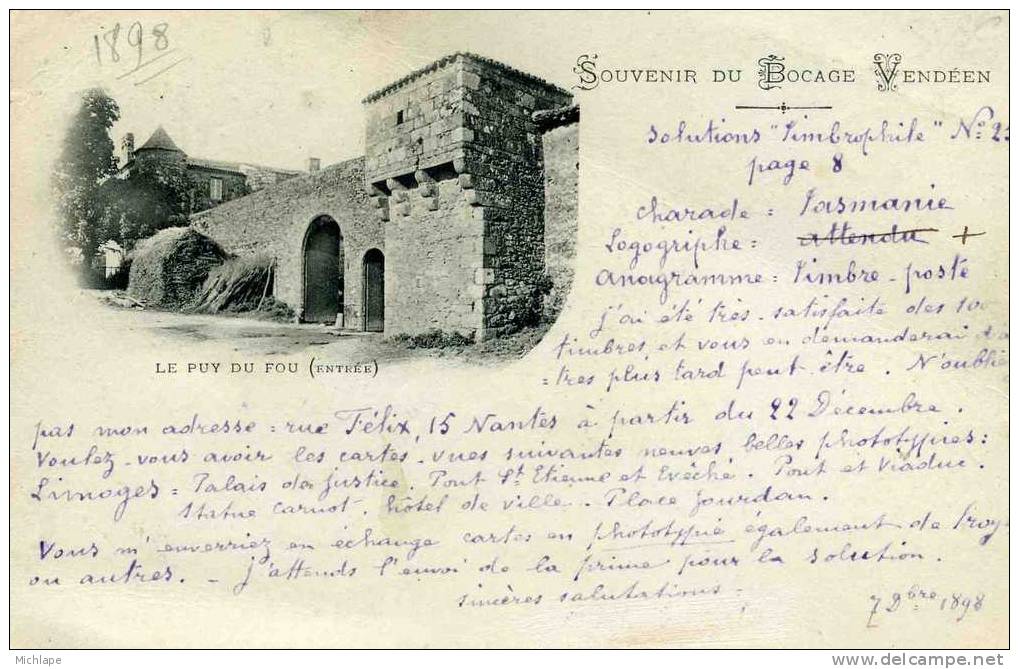 1898
SOUVENIR DU BOCAGE VENDÉEN
Solutions "Timbrophile" No 23
page 8
charade = Tasmanie
Logogriphe = attendu +
Anagramme = Timbre-poste
j'ai été très-satisfaite des 100
timbres et vous en demanderai d'a
LE PUY DU FOU (ENTRÉE)
=tres plus tard peut être. N'oublie
pas mon adresse = rue Félix, 15 Nantes à partir du 22 Décembre.
Voulez-vous avoir les cartes-vues suivantes neuves, belles phototypies:
Limoges = Palais de justice. Pont St Etienne et Evêché. Pont et Viaduc.
Statue Carnot. hôtel de ville. Place Jourdan.
Vous m'enverriez en échange cartes en phototypie également de Troy
ou autres. - J'attends l'envoi de la prime pour la solution.
sincères salutations.
7 Dbre 1898
Michlape
http://www.delcampe.net